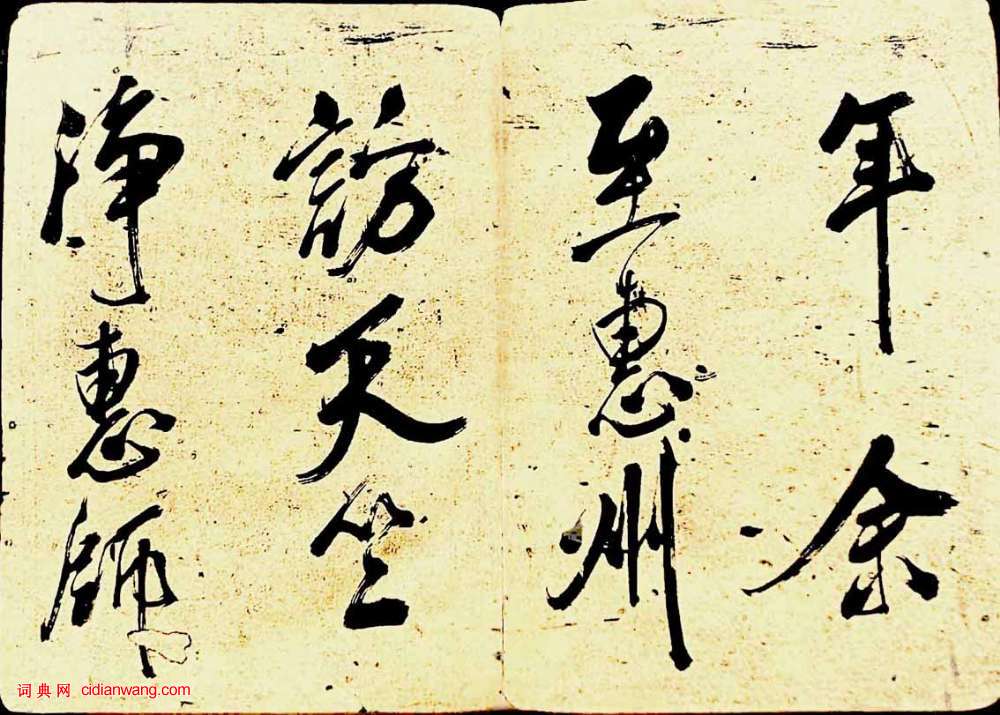 年余
至惠州
訪天竺
淨惠師
词典网 cidianwang.com